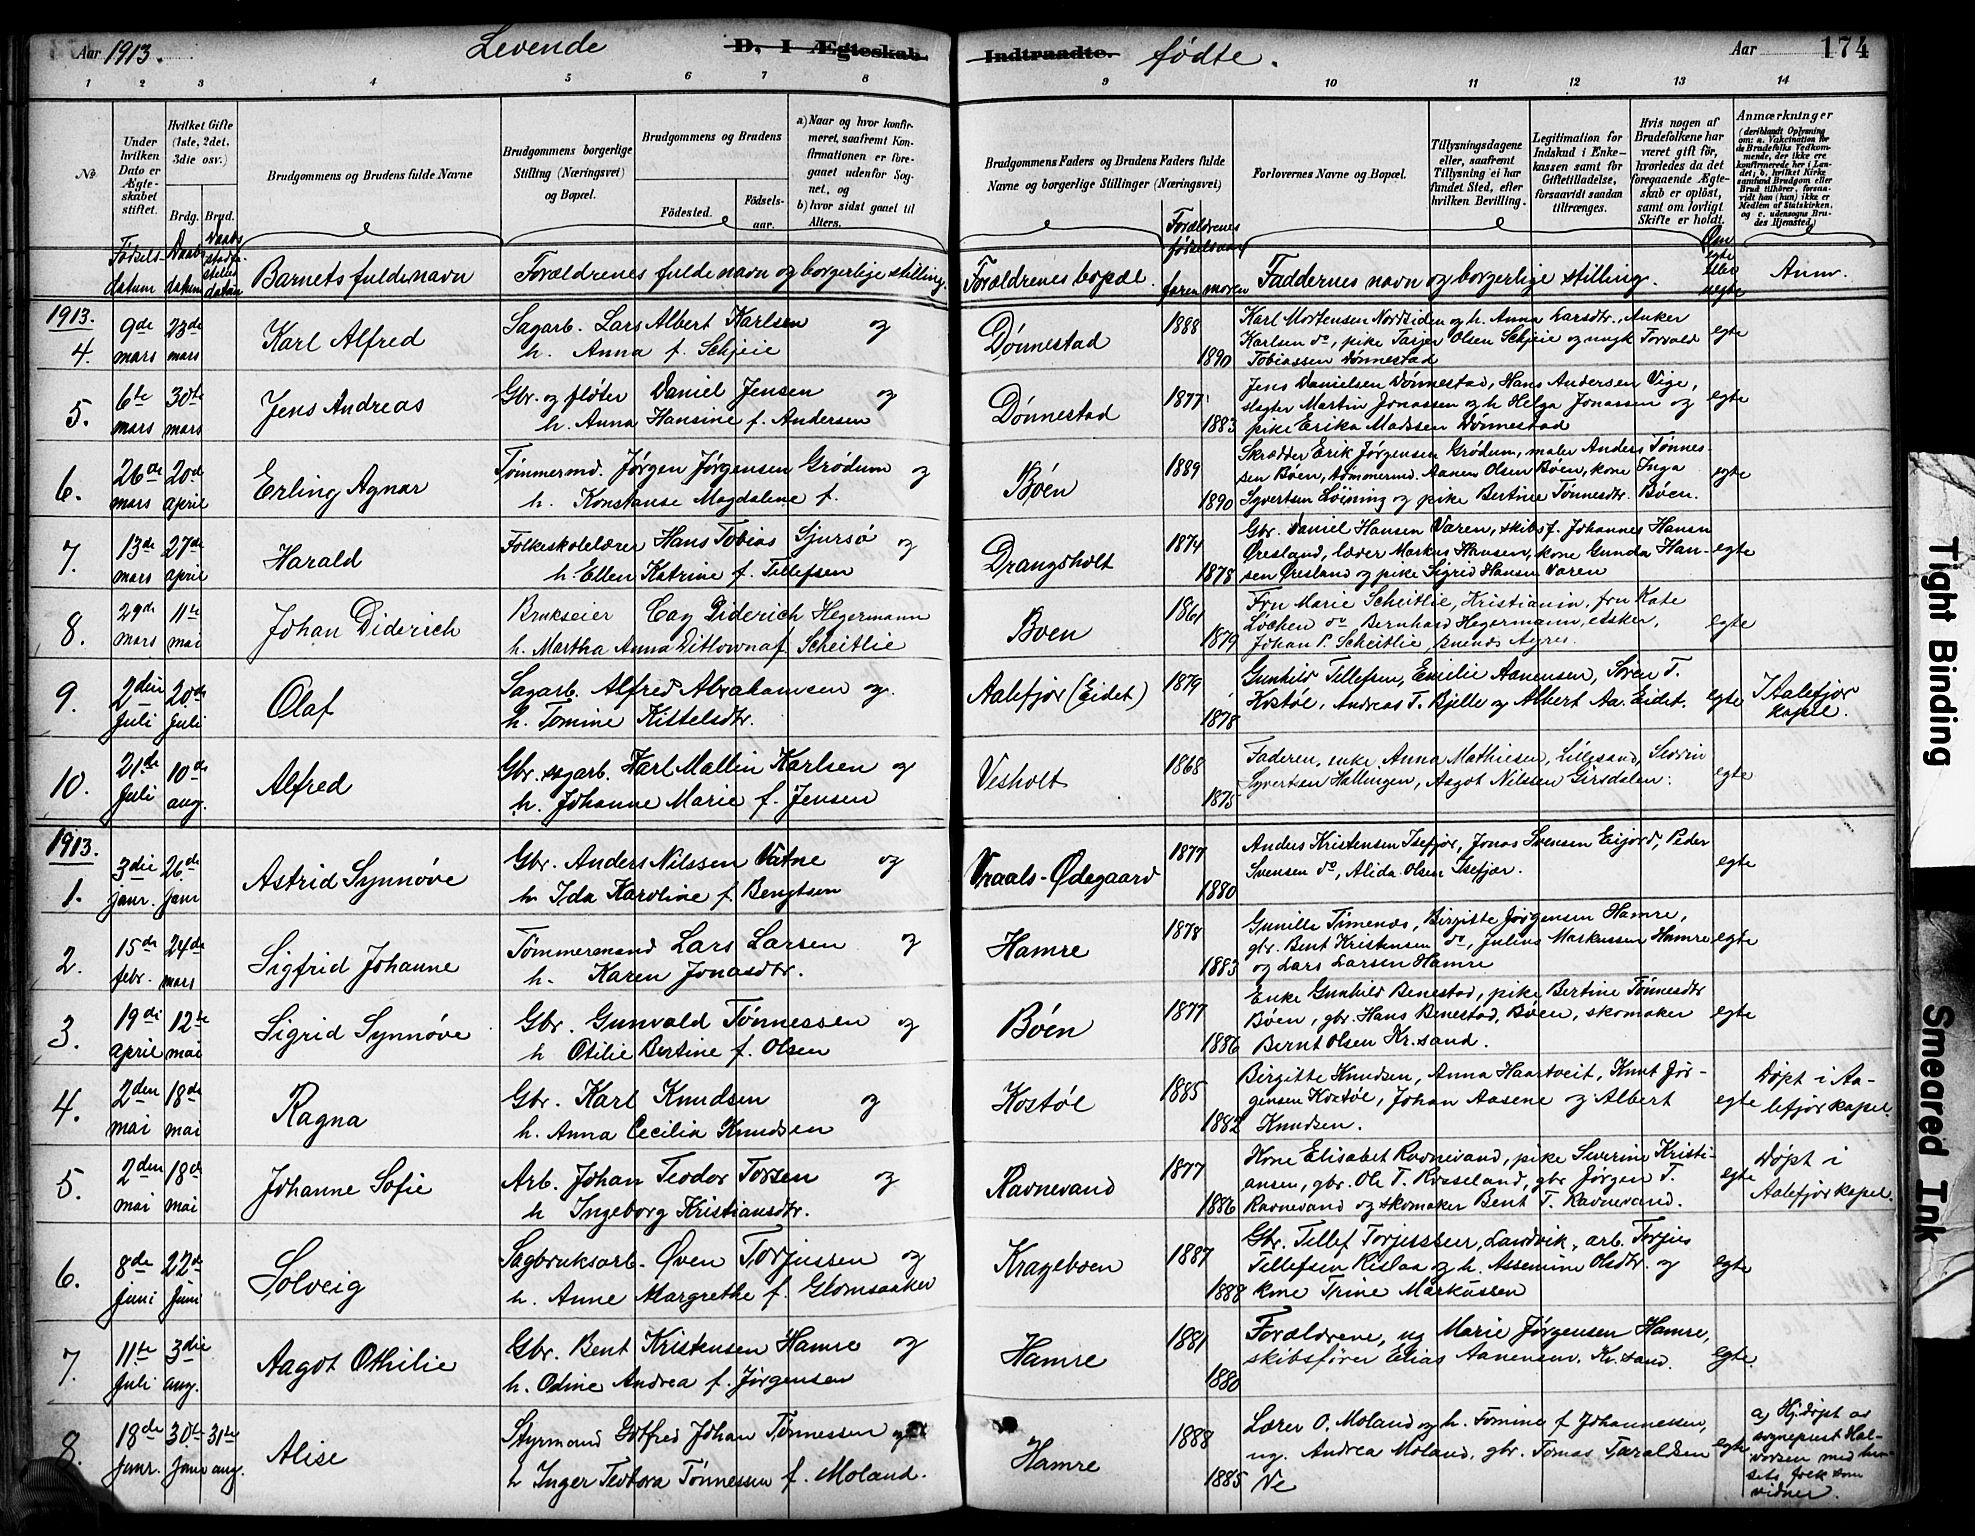 Aar 1913. Levende D. I Ægteskab Indtraadte. fødte. Aar 174
1 2 3 4 5 6 7 8 9 10 11 12 13 14
No
Under hvilken Dato er Ægteskabet stiftet.
Hvilket Gifte (1ste, 2det, 3die osv.)
Brdg. Brud.
Brudgommens og Brudens fulde Navne
Brudgommens borgerlige Stilling (Næringsvei) og Bopæl.
Brudgommens og Brudens
Fødested. Fødselsaar.
a) Naar og hvor konfirmeret, saafremt Konfirmationen er foregaaet udenfor Sognet, og
b) hvor sidst gaaet til Alters.
Brudgommens Faders og Brudens Faders fulde Navne og borgerlige Stillinger (Næringsvei)
Forlovernes Navne og Bopæl.
Tillysningsdagene eller, saafremt Tillysning ei har fundet Sted, efter hvilken Bevilling.
Legitimation for Indskud i Enkekassen samt for Giftetilladelse, forsaavidt saadan tiltrænges.
Hvis nogen af Brudefolkene har været gift før, hvorledes da det foregaaende Ægteskab er opløst, samt om lovligt Skifte er holdt.
Anmærkninger
(deriblandt Oplysning om: a. Vakcination for de Brudefolks Vedkommende, der ikke ere konfirmerede her i Landet; b. hvilket Kirkesamfund Brudgom eller Brud tilhører, forsaavidt han (hun) ikke er Medlem af Statskirken, og c. udensogns Brudes Hjemsted.)
Fødsels datum Daabs datum Daabs stadfæstelses datum Barnets fulde navn Forældrenes fulde navn og borgerlige stilling.
Forældrenes bopæl. Forældrenes fødselsaar faren moren Faddernes navn og borgerlige stilling. Om egte eller uegte Anm.
1913.
4. 9de mars 23de mars Karl Alfred
Sagarb. Lars Albert Karlsen og
h. Anna f. Schjeie
Dønnestad 1888 1890
Karl Mortensen Nordsiden og h. Anna Larsdtr., Anker
Karlsen do, pike Tarjer Olsen Schjeie og ungk Torvald
Tobiassen Dønnestad
egte
5. 6te mars 30te mars Jens Andreas
Gbr. og fløter Daniel Jensen og
h. Anna Hansine f. Andersen
Dønnestad 1877 1883
Jens Danielsen Dønnestad, Hans Andersen Vige,
slagter Martin Jonassen og h Helga Jonassen og
pike Erika Madssen Dønnestad
egte
6. 26de mars 20de april Erling Agnar
Tømmermd. Jørgen Jørgensen Grødum og
h. Konstanse Magdalene f.
Bøen 1889 1890
Skrædder Erik Jørgensen Grødum, maler Anders Tønnessen
Bøen, tømmermd. Aanen Olsen Bøen, kone Inga
Syvertsen Løining og pike Bertine Tønnesdtr. Bøen.
egte
7. 13de mars 27de april Harald
Folkeskolelærer Hans Tobias Sjursø og
h Ellen Katrine f. Tellefsen
Drangsholt 1874 1878
Gbr. Daniel Hansen Varen, skibsf. Johannes Hansen
Øresland, læder Markus Hansen, kone Gunda Hansen
Øresland og pike Sigrid Hansen Varen
egte
8. 29de mars 11te mai Johan Diderich
Brukseier Cay Diderich Hegermann
h. Martha Anna Ditlovna f. Scheitlie
Boen 1861 1879
Fru Marie Scheitlie, Kristiania, fru Kate
Løchen do Bernhard Hegermann,
Johan P. Scheitlie, Buenos Ayres.
egte
9. 2den Juli 20de Juli Olaf
Sagarb. Alfred Abrahamsen og.
h. Tomine Kittelsdtr.
Aalefjær (Eidet) 1879 1878
Gunhild Tellefsen, Emilie Aanensen, Søren T.
Kostøl, Andreas T. Bjelle og Albert Aa. Eidet.
egte I Aalefjær kapel.
10. 21de Juli 10de aug. Alfred
Gbr. sagarb. Karl Mallin Karlsen og
h. Johanne Marie f. Jensen
Vesholt 1868 1875
Faderen, enke Anna Mathiesen, Lillesand, Severin
Syvertsen Hallingen, Aagot Nilssen Girsdalen.
egte
1913.
1. 3die janr. 26de janr Astrid Synnøve
Gbr. Anders Nilssen Vatne og
h. Ida Karoline f. Bengtsen
Vraals-Ødegaard 1877 1880
Anders Kristensen Isefjær, Jonas Svensen Eijord, Peder
Svensen do, Alida Olsen Isefjær.
egte
2. 15de febr. 24de mars Sigfrid Johanne
Tømmermand Lars Larsen og
h. Karen Jonasdtr.
Hamre 1878 1883
Gunille Timenes, Birgitte Jørgensen Hamre,
gbr. Bent Kristensen do, Julius Markussen Hamre
og Lars Larsen Hamre
egte
3. 19de april 12te mai Sigrid Synnøve
Gbr. Gunvald Tønnessen og
h Otilie Bertine f. Olsen
Bøen 1877 1886
Enke Gunhild Benestad, pike Bertine Tønnesdtr
Bøen, gbr. Hans Benestad, Bøen, skomaker
Bernt Olsen Kr.sand.
egte
4. 2den mai 18de mai Ragna
Gbr. Karl Knudsen og
h. Anna Cecilia Knudsen
Kostøl 1885 1882
Birgitte Knudsen, Anna Haartveit, Knut Jørgensen
Kostøl, Johan Aasene og Albert
Knudsen.
egte Døpt i Aalefjær kapel.
5. 2den mai 18de mai Johanne Sofie
Arb. Johan Teodor Torsen og
h Ingeborg Kristiansdtr.
Ravnevand 1877 1886
Kone Elisabet Ravnevand, pike Severine Kristiansen,
gbr. Ole T. Rosseland, gbr Jørgen T.
Ravnevand og skomaker Bent T. Ravnevand.
egte Døpt i Aalefjær kapel.
6. 8de juni 22de Juni Solveig
Sagbruksarb. Øven Torjussen og
h. Anne Margrethe f. Glomsaaker
Krageboen 1887 1888
Gbr. Tellef Torjussen, Landvik, arb. Torjus
Tellefsen Rislaa og h. Assemine Olsdtr. og
kone Trine Markussen
egte
7. 11te Juli 3die aug. Aagot Othilie
Gbr. Bent Kristensen Hamre og
h. Odine Andrea f. Jørgensen
Hamre 1881 1880
Forældrene, ug Marie Jørgensen Hamre,
skibsfører Elias Aanensen, Kr.sand.
egte
8. 18de janr. 30te Janr 31te aug. Alise
Styrmand Gotfred Johan Tønnessen og
h Inger Teodora Tønnessen f. Moland.
Hamre 1888 1885
Lærer O. Moland og h. Tomine f Johannessen,
ug. Andrea Moland, gbr. Tomas Taraldsen
Ve
egte
a) Hj.døpt av sogneprest Halvorsen med husets folk som vidner.
Tight Binding
Smeared Ink